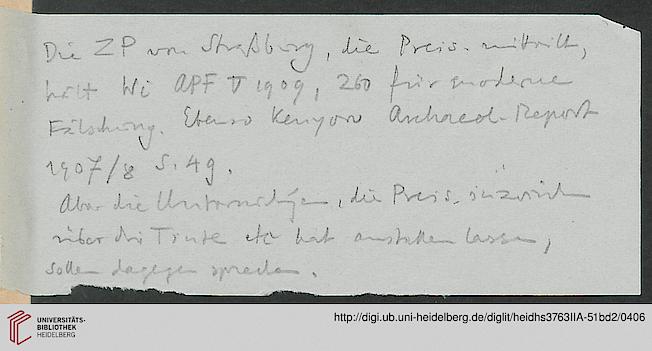 Die ZP von Straßburg, die Preis. mitteilt,
hält Wi APF V 1909, 260 für moderne
Fälschung. Ebenso Kenyon Archaeol. Report
1907/8 S. 49.
Aber die Untersuchungen, die Preis. inzwischen
über die Tinte etc hat anstellen lassen,
sollen dagegen sprechen.
UNIVERSITÄTS-
BIBLIOTHEK
HEIDELBERG
http://digi.ub.uni-heidelberg.de/diglit/heidhs3763IIA-51bd2/0406